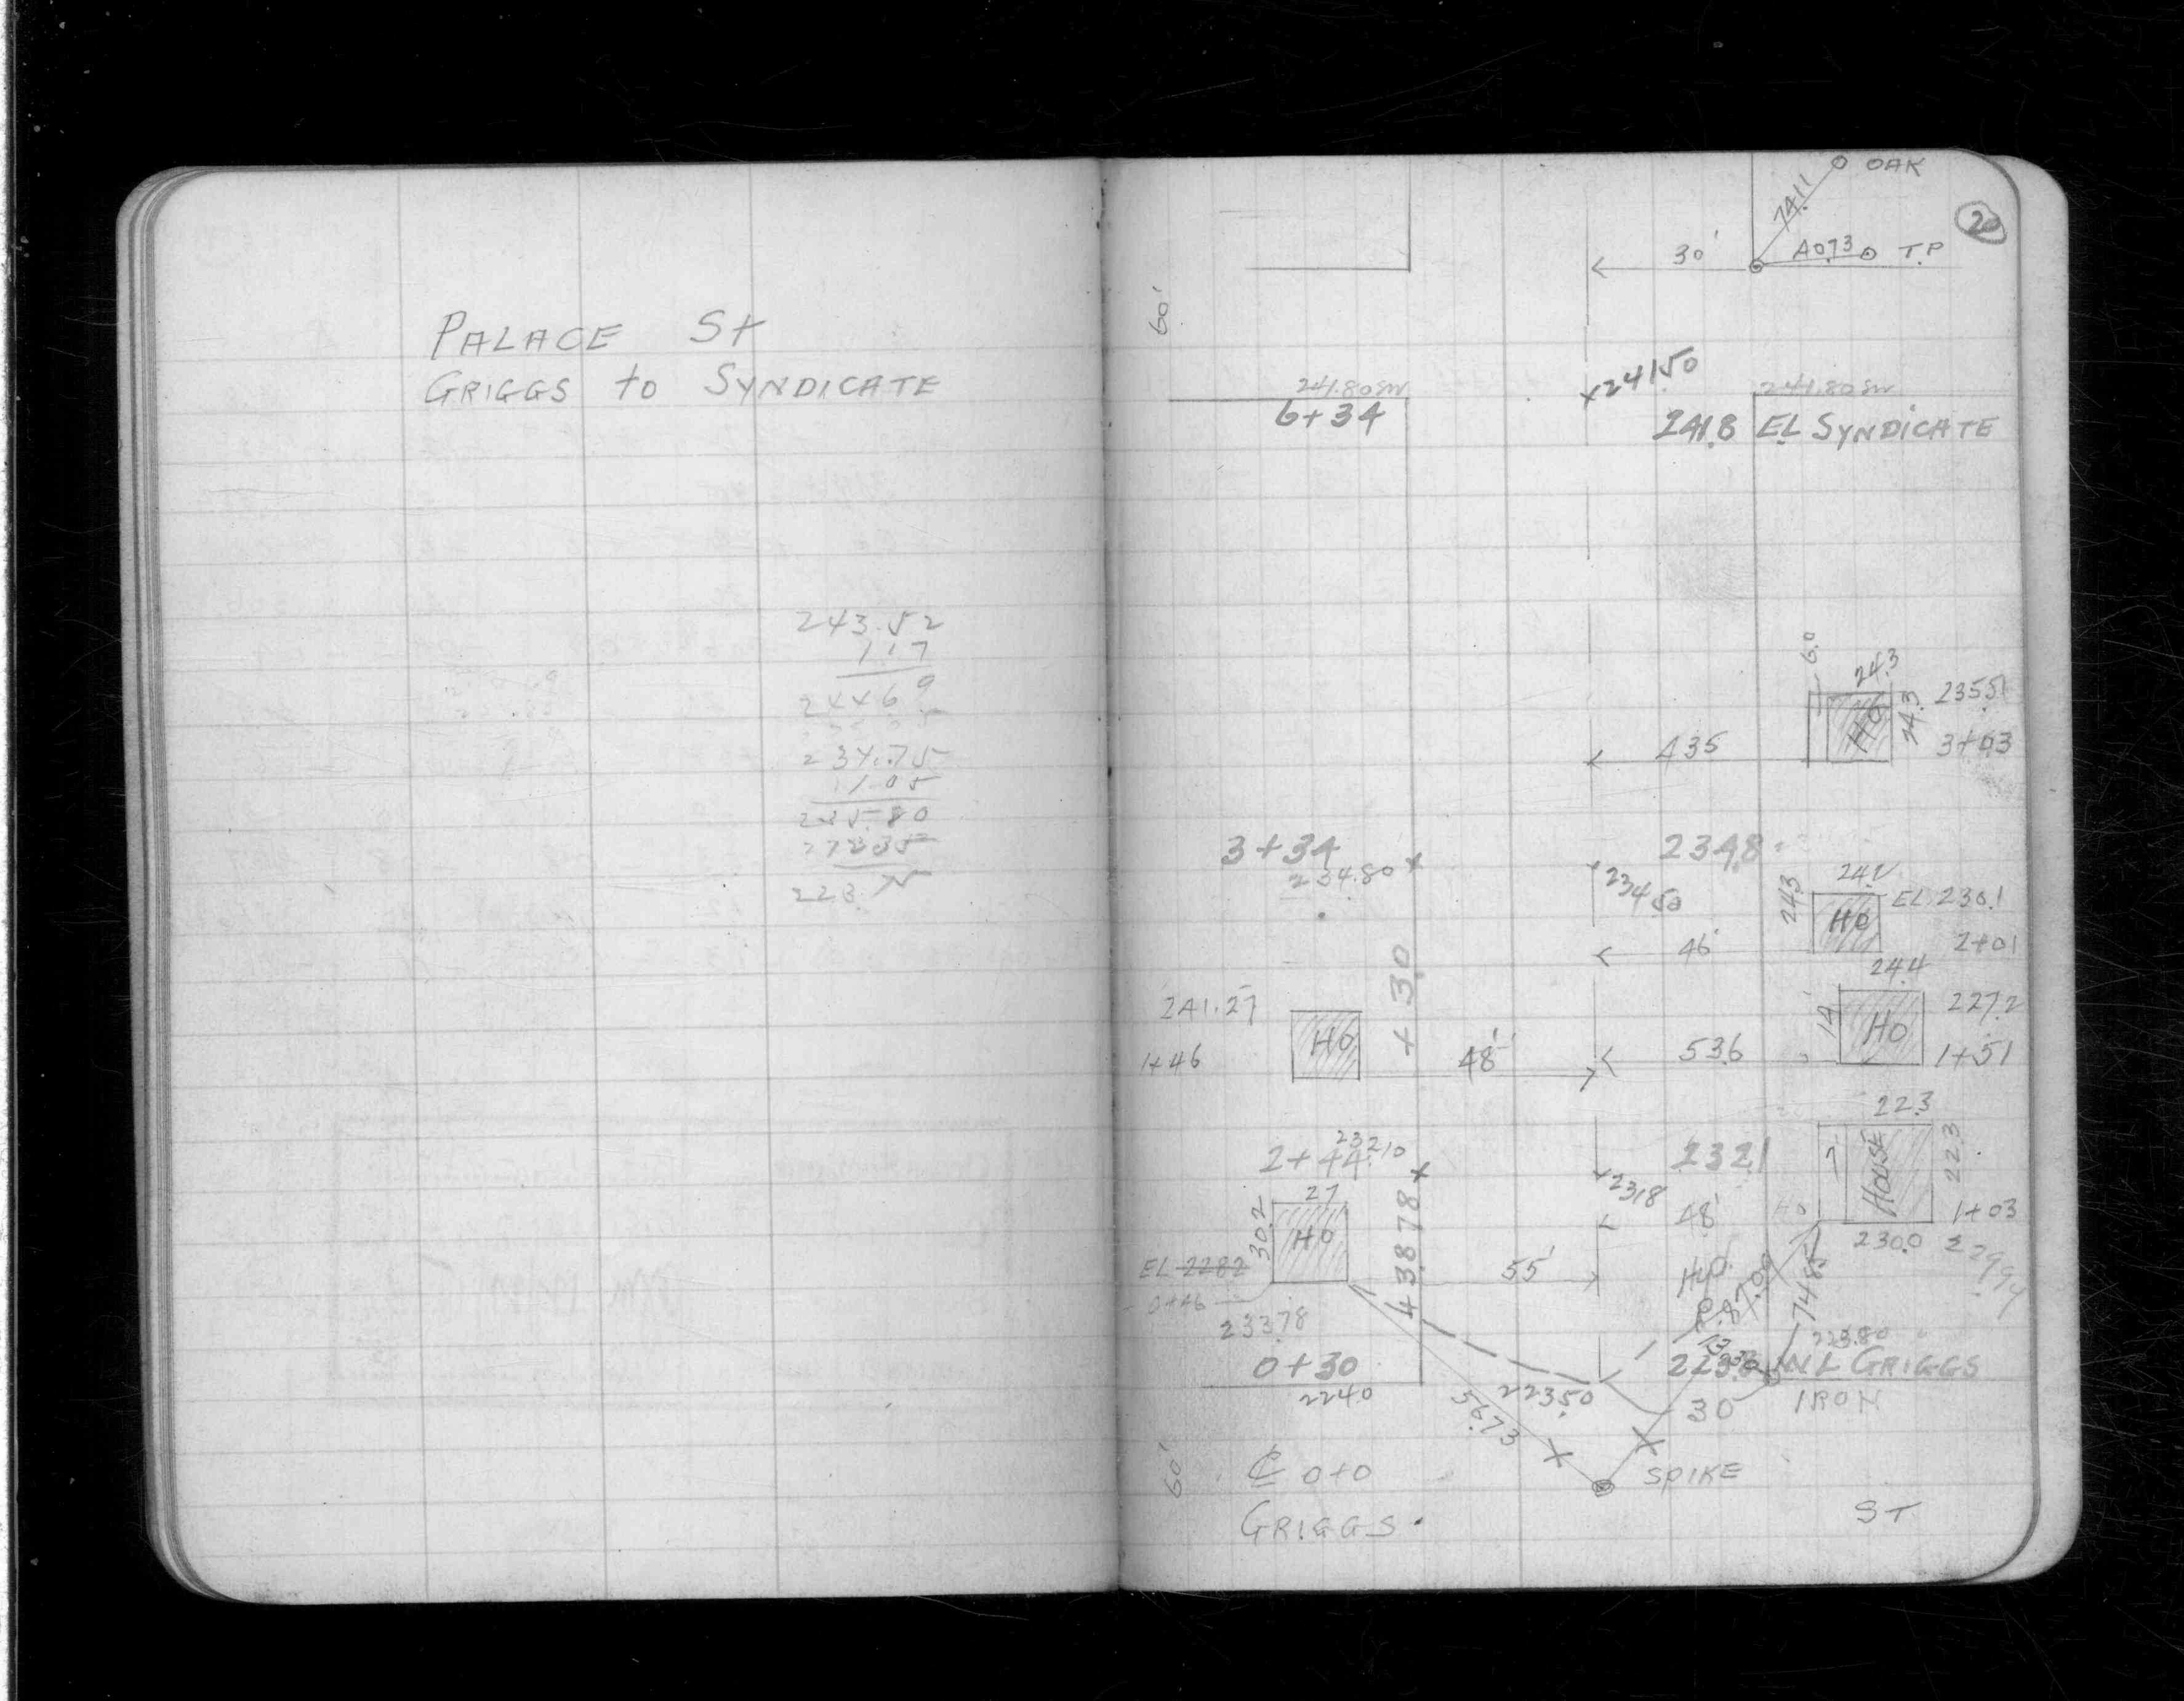 PALACE St
GRIGGS to SYNDICATE
243.52
1.17
244.69
234.75
1.05
235.80
20
OAK
74.11
40.73
T.P
30'
60'
241.80 SW
6+34
241.50
241.80 SW
241.8 EL SYNDICATE
6.0
24.3
24.3
HO
235.51
3+03
43.5
3+34
234.80
234.8
234.50
24.3
24.2
HO
EL 230.1
2+01
46'
+3.0
24.4
241.27
HO
1+46
48'
53.6
14'
HO
227.2
1+51
22.3
2+44
232.10
232.1
231.8
HOUSE
22.3
7
48'
1+03
230.0
27
30.2
HO
EL 228.2
0+46
233.78
55'
+3.878
HYD.
87.09
74.85
223.80
0+30
224.0
223.50
223.8 NL GRIGGS
30
IRON
56.73
60'
℄ 0+0
SPIKE
GRIGGS
ST